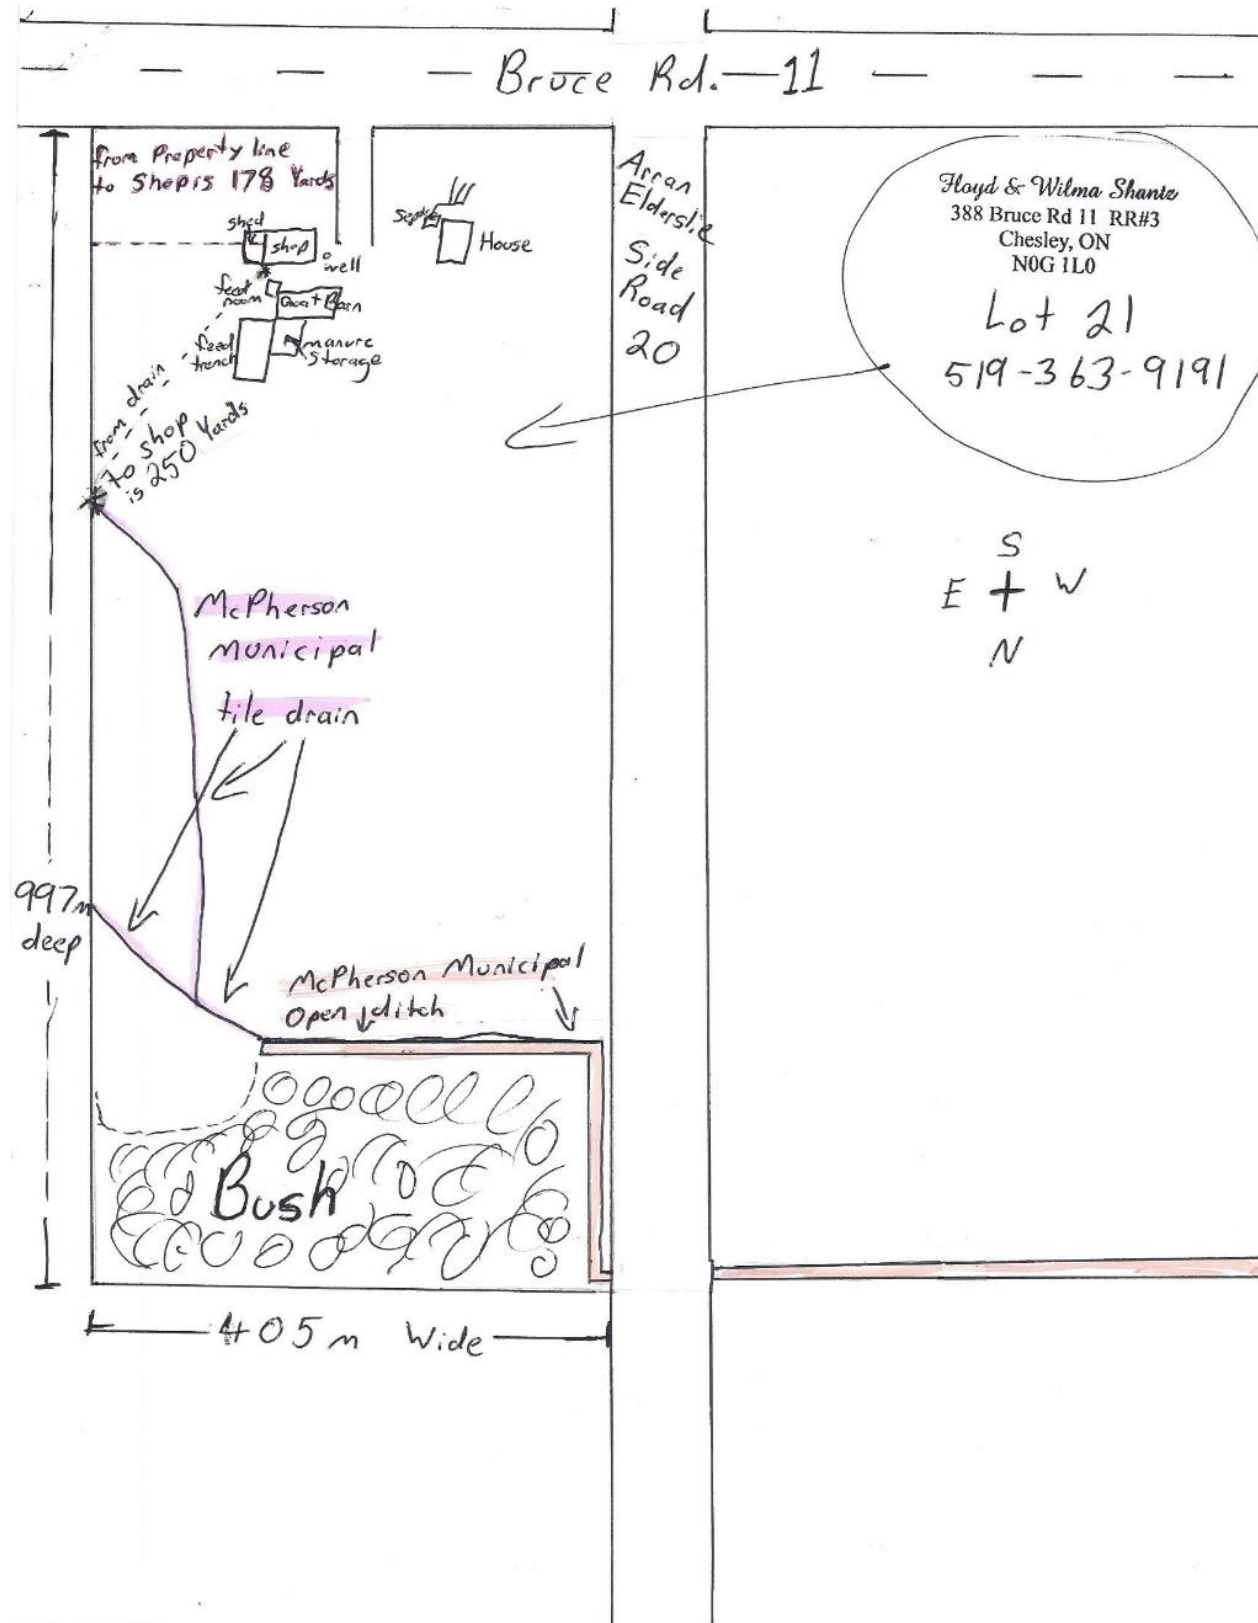 Bruce Rd. 11
from Property line
to Shop is 178 Yards
shed
shop
well
feed
room
Goat Barn
feed
trench
manure
storage
Septic
House
Arran
Elderslie
Side
Road
20
Floyd & Wilma Shantz
388 Bruce Rd 11 RR#3
Chesley, ON
N0G 1L0
Lot 21
519-363-9191
from drain
to shop
is 250 Yards
S
E W
N
McPherson
Municipal
tile drain
997m
deep
McPherson Municipal
Open ditch
Bush
405m Wide